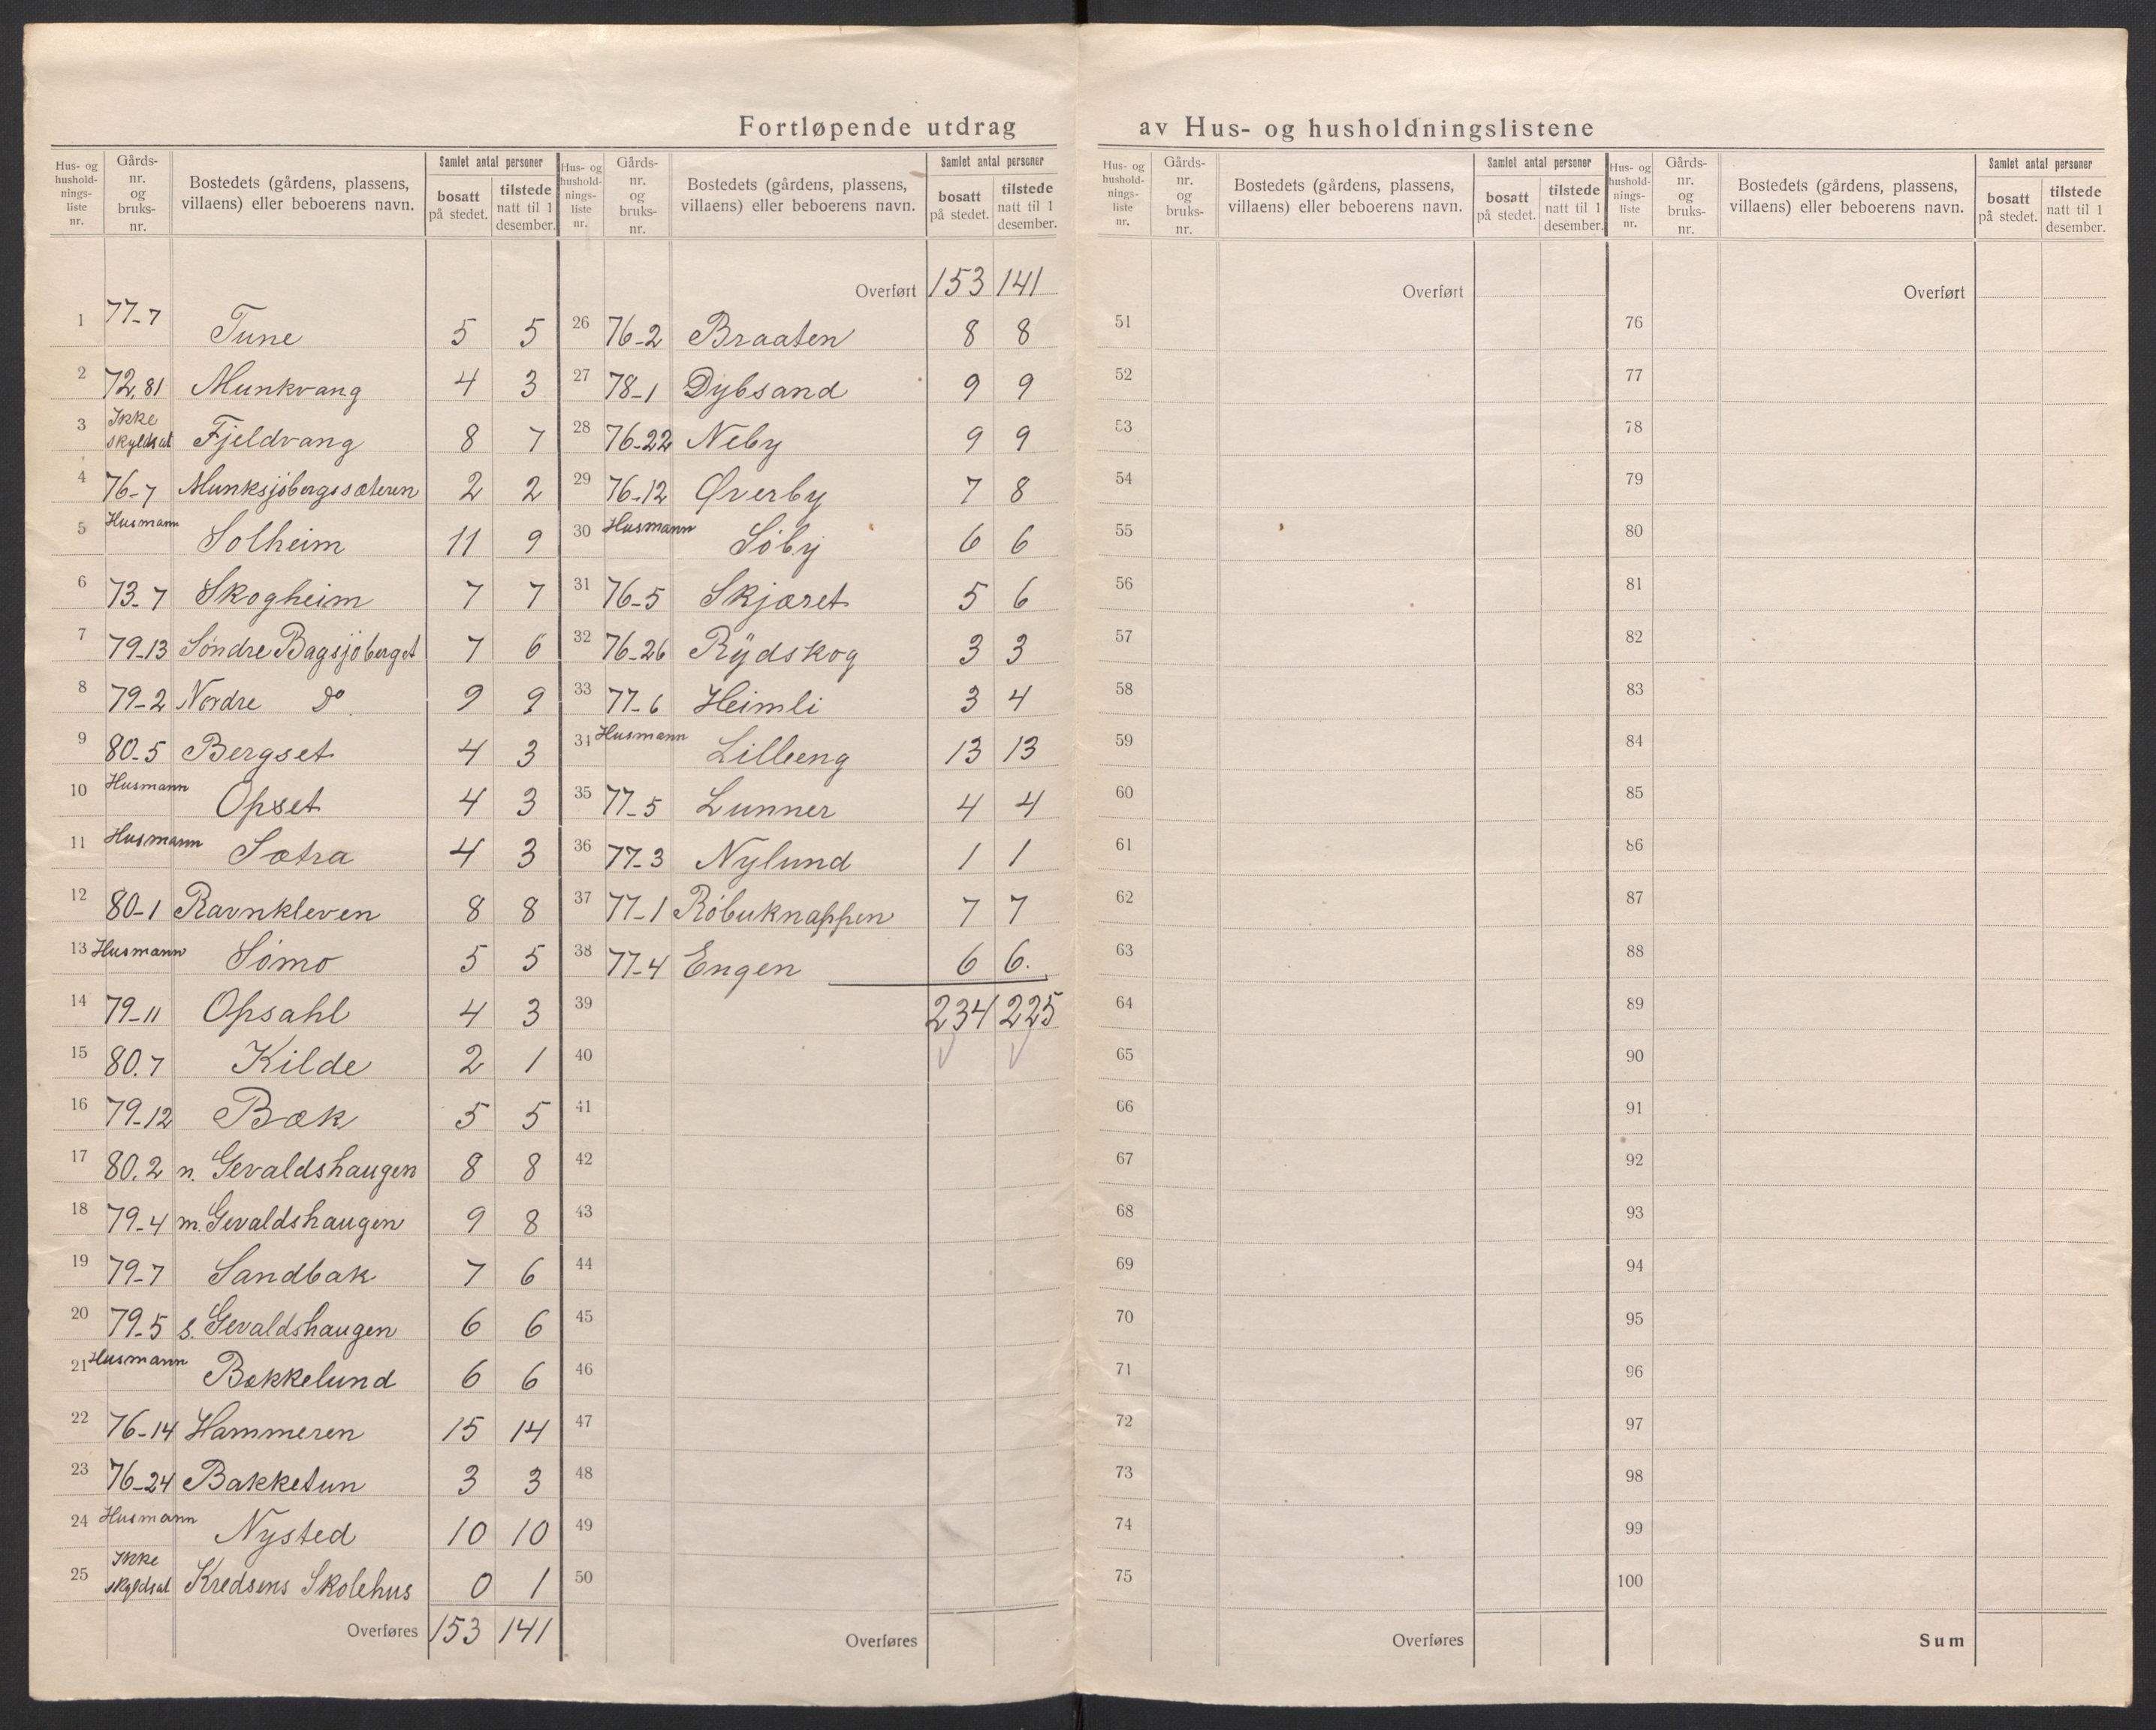 Fortløpende utdrag av Hus- og husholdningslistene
Hus- og husholdnings-liste nr. | Gårds-nr. og bruks-nr. | Bostedets (gårdens, plassens, villaens) eller beboerens navn. | Samlet antal personer | bosatt på stedet. | tilstede natt til 1 desember.
1 77-7 Tune 5 5
2 72,81 Munkvang 4 3
3 Ikke skyldsat Fjeldvang 8 7
4 76-7 Munksjöbergssæteren 2 2
5 Husmann Solheim 11 9
6 73-7 Skogheim 7 7
7 79-13 Söndre Bagsjöberget 7 6
8 79-2 Nordre do 9 9
9 80-5 Bergset 4 3
10 Husmann Opset 4 3
11 Husmann Sætra 4 3
12 80-1 Ravnkleven 8 8
13 Husmann Sömo 5 5
14 79-11 Opsahl 4 3
15 80.7 Kilde 2 1
16 79-12 Bæk 5 5
17 80.2 n. Gevaldshaugen 8 8
18 79-4 m. Gevaldshaugen 9 8
19 79-7 Sandbæk 7 6
20 79-5 s. Gevaldshaugen 6 6
21 Husmann Bækkelund 6 6
22 76-14 Hammeren 15 14
23 76-24 Bakketun 3 3
24 Husmann Nysted 10 10
25 Ikke skyldsat Kredsens Skolehus 0 1
Overføres 153 141
Hus- og husholdnings-liste nr. | Gårds-nr. og bruks-nr. | Bostedets (gårdens, plassens, villaens) eller beboerens navn. | Samlet antal personer | bosatt på stedet. | tilstede natt til 1 desember.
Overført 153 141
26 76-2 Braaten 8 8
27 78-1 Dybsand 9 9
28 76-22 Neby 9 9
29 76-12 Øverby 7 8
30 Husmann Söby 6 6
31 76-5 Skjæret 5 6
32 76-26 Rydskog 3 3
33 77-6 Heimli 3 4
34 Husmann Lilleeng 13 13
35 77-5 Lunner 4 4
36 77-3 Nylund 1 1
37 77-1 Röbuknappen 7 7
38 77-4 Engen 6 6.
39 234 225
40
41
42
43
44
45
46
47
48
49
50
Overføres
Hus- og husholdnings-liste nr. | Gårds-nr. og bruks-nr. | Bostedets (gårdens, plassens, villaens) eller beboerens navn. | Samlet antal personer | bosatt på stedet. | tilstede natt til 1 desember.
Overført
51
52
53
54
55
56
57
58
59
60
61
62
63
64
65
66
67
68
69
70
71
72
73
74
75
Overføres
Hus- og husholdnings-liste nr. | Gårds-nr. og bruks-nr. | Bostedets (gårdens, plassens, villaens) eller beboerens navn. | Samlet antal personer | bosatt på stedet. | tilstede natt til 1 desember.
Overført
76
77
78
79
80
81
82
83
84
85
86
87
88
89
90
91
92
93
94
95
96
97
98
99
100
Sum